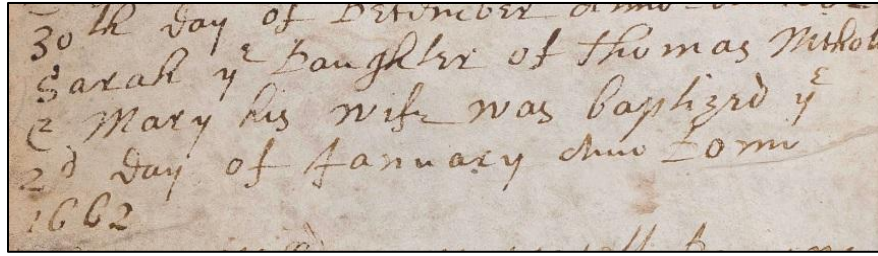 30th day of December Anno
Sarah yᵉ Daughter of Thomas Nichol
& Mary his wife was baptized yᵉ
2d day of January Anno Domi
1662